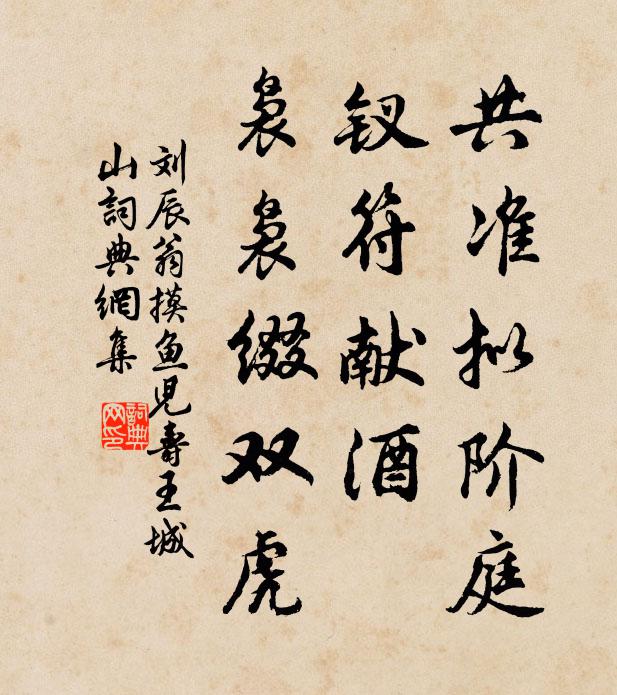 共准拟阶庭
钗符献酒
袅袅缀双虎
刘辰翁摸鱼児寿王城
山詞典網集
詞典
网印